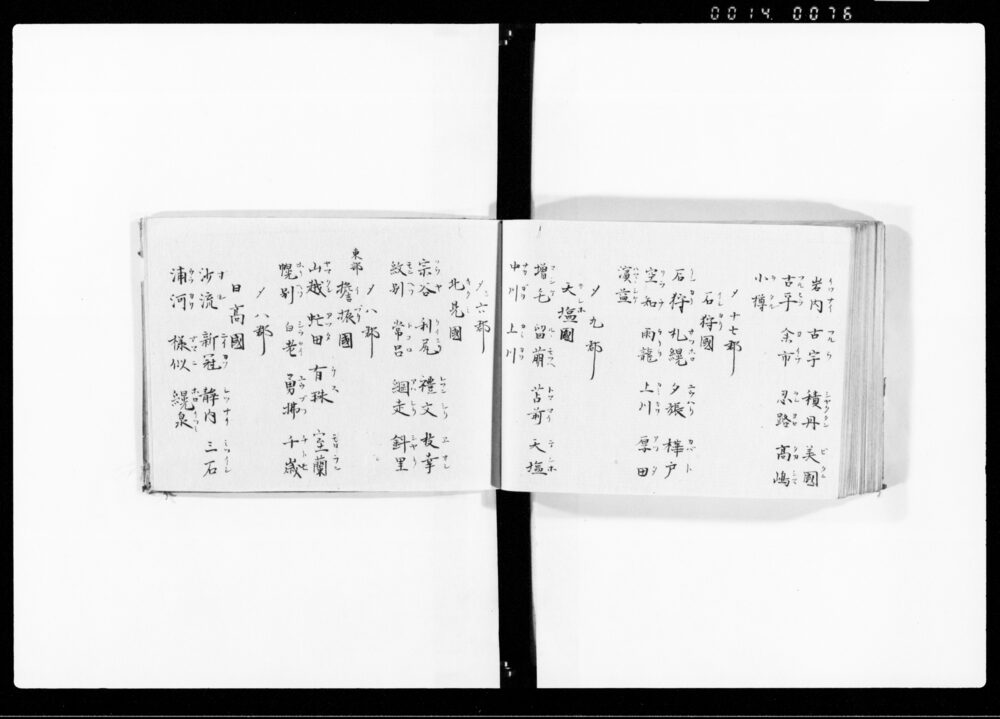 0014 0076
岩内 古宇 積丹 美國
古平 余市 忍路 高嶋
小樽
〆十七郡
石狩國
石狩 札縨 夕張 樺戸
空知 雨龍 上川 厚田
濱益
〆九郡
天塩國
増毛 留萠 苫前 天塩
中川 上川
〆六郡
北見國
宗谷 利尻 禮文 枝幸
紋別 常呂 網走 斜里
〆八郡
東部
膽振國
山越 虻田 有珠 室蘭
幌别 白老 勇拂 千歳
〆八郡
日高國
沙流 新冠 静内 三石
浦河 様似 縨泉